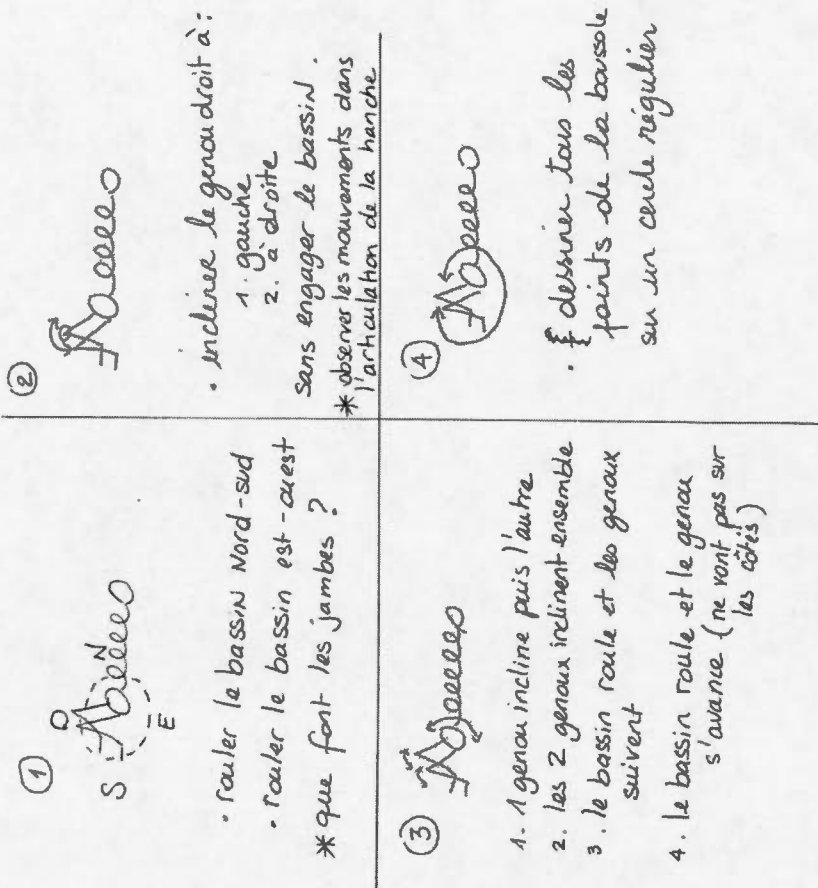 ①
S
O
N
E
• rouler le bassin Nord-sud
• rouler le bassin est-ouest
* que font les jambes ?
②
• incliner le genou droit à :
1. gauche
2. à droite
sans engager le bassin.
* observer les mouvements dans
l'articulation de la hanche
③
1. 1 genou incline puis l'autre
2. les 2 genoux inclinent ensemble
3. le bassin roule et les genoux
suivent
4. le bassin roule et le genou
s'avance (ne vont pas sur
les côtés)
④
• dessiner tous les
points de la boussole
sur un cercle régulier